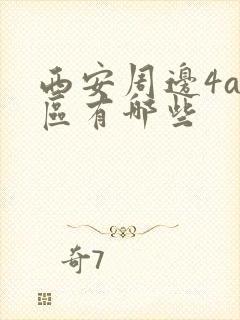 西安周邊4a
區有哪些
奇7